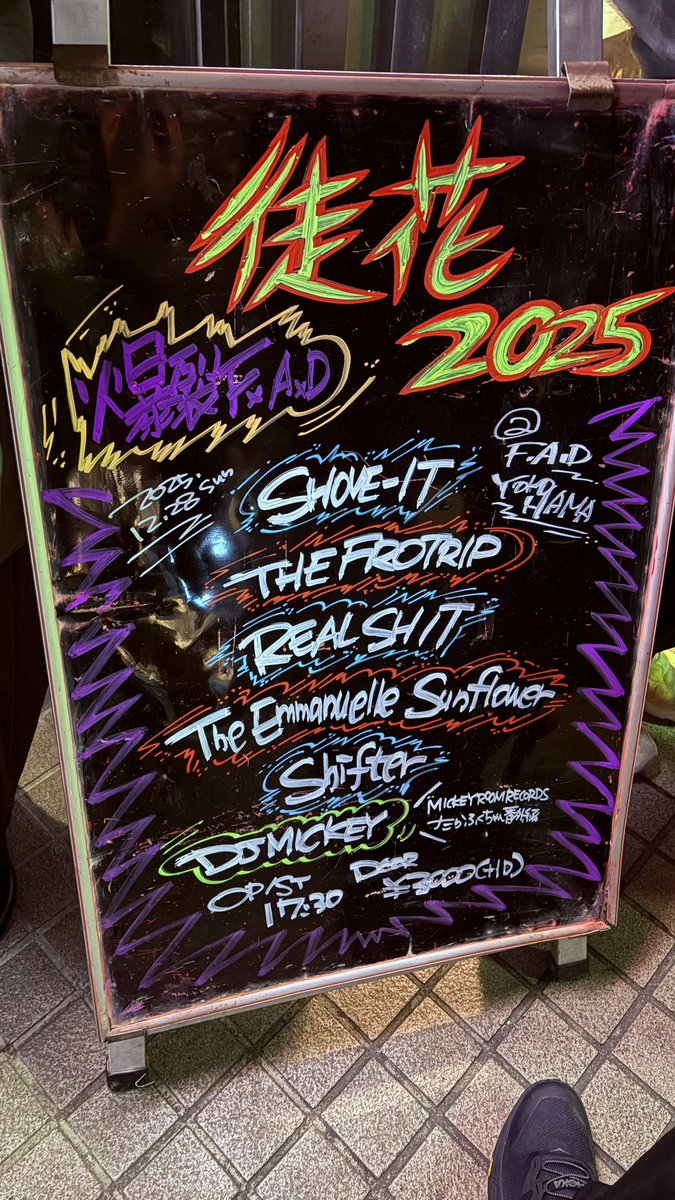 徒花
2025
爆裂F×A×D
2025.
12.28 Sun
@
F.A.D
YOKO
HAMA
SHOVE-IT
THE FROTRIP
REAL SHIT
The Emmanuelle Sunflower
Shifter
DJ MICKEY
MICKEY ROOM RECORDS
OP/ST
17:30
DOOR
¥3000(+1D)
HOKA